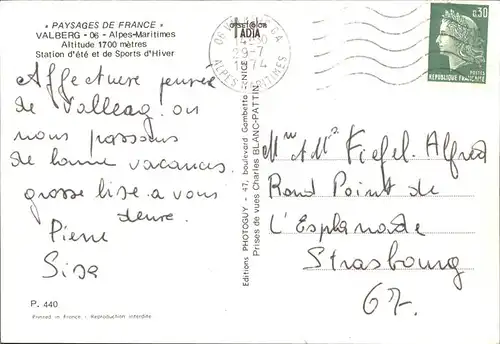 « PAYSAGES DE FRANCE »
VALBERG - 06 - Alpes-Maritimes
Altitude 1700 mètres
Station d'été et de Sports d'Hiver
ADIA
06 VA
29-7
1974
ALPES MARITIMES
0,30
POSTES
REPUBLIQUE FRANÇAISE
Affectueuse pensée
de Valberg ou
nous passons
de bonne vacances.
grosse bise a vous
deux.
Pierre
Sisa
P. 440
Printed in France - Reproduction interdite
Editions PHOTOGUY - 47, boulevard Gambetta - NICE
Prises de vues Charles BLANC-PATTIN
Mr et Mme Fiefel Alfred
Rond Point de
L'Esplanade
Strasbourg
67.